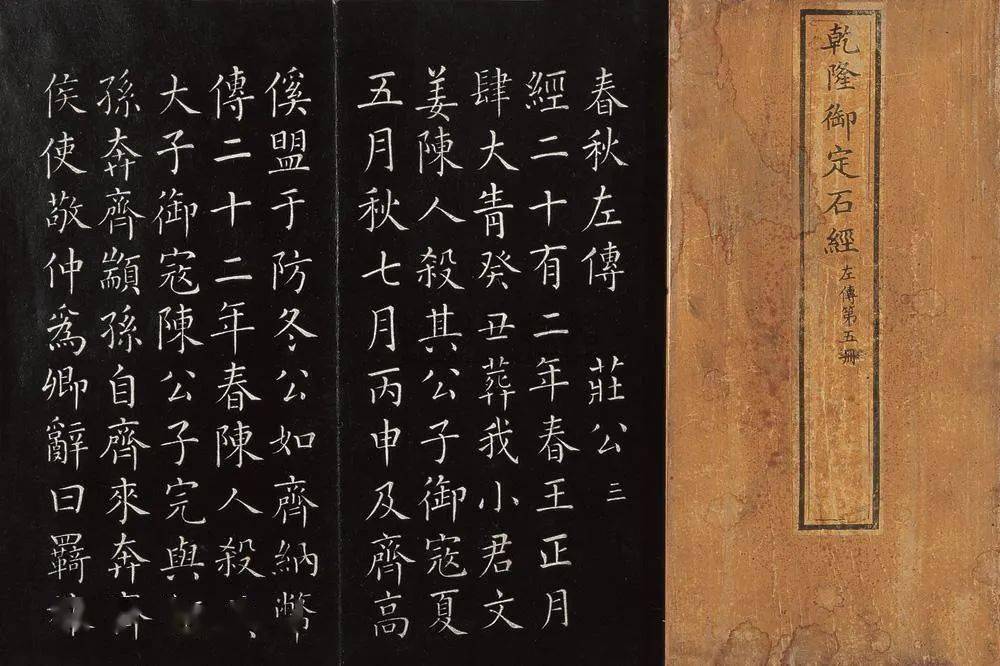 乾隆御定石經
左傳第五冊
春秋左傳 莊公 三
經二十有二年春王正月
肆大眚癸丑葬我小君文
姜陳人殺其公子御寇夏
五月秋七月丙申及齊高
傒盟于防冬公如齊納幣
傳二十二年春陳人殺
大子御寇陳公子完與
孫奔齊顓孫自齊來奔
侯使敬仲爲卿辭曰羇